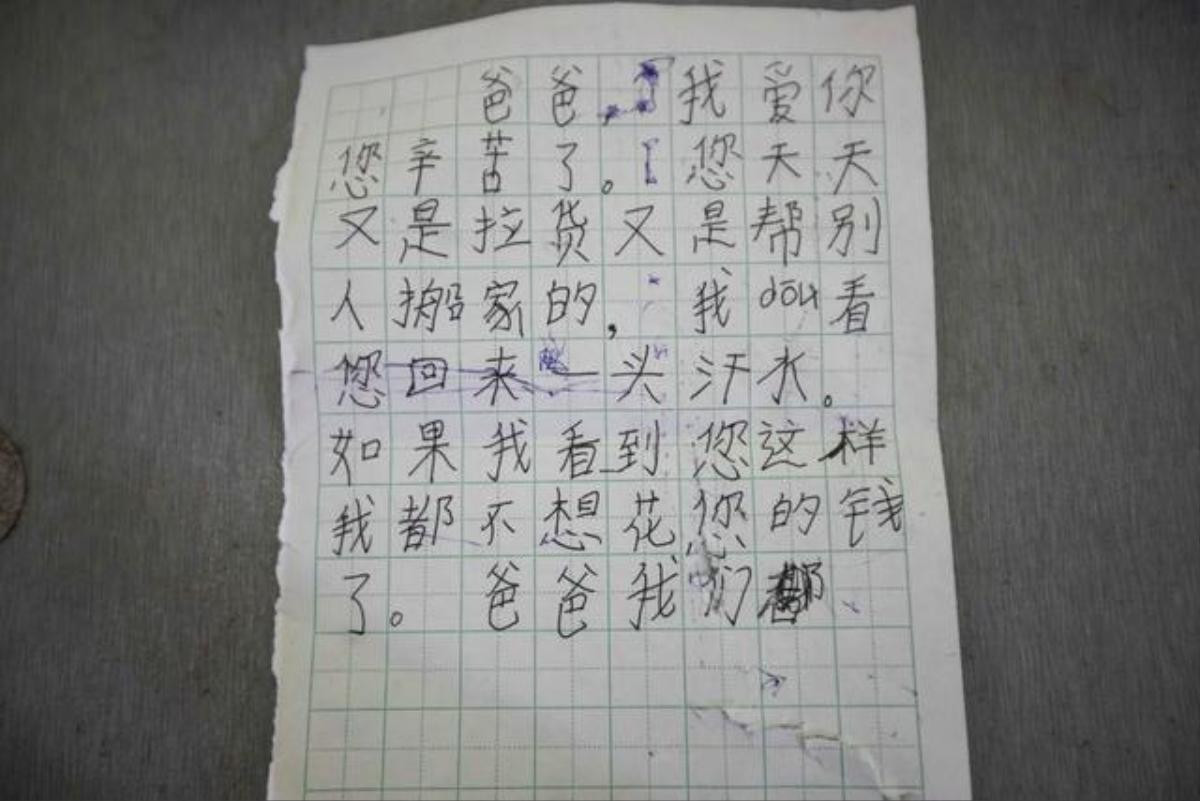 爸爸,我爱你
您辛苦了。您天天
又是拉货又是帮别
人搬家的,我dōu看
您回来一头汗水。
如果我看到您这样
我都不想花您的钱
了。爸爸我们都